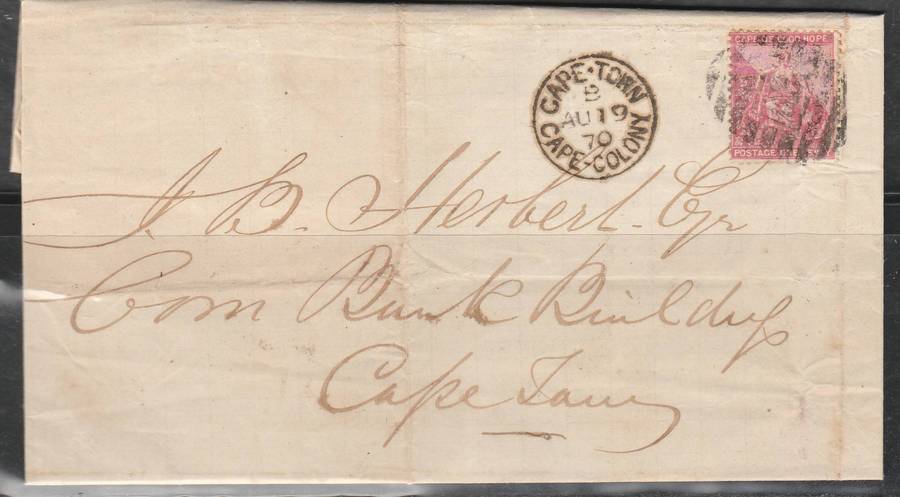 CAPE OF GOOD HOPE
POSTAGE ONE PENNY
CAPE·TOWN
B
AU 19
70
CAPE-COLONY
J. B. Herbert Esqr
Com Bank Buildings
Cape Town